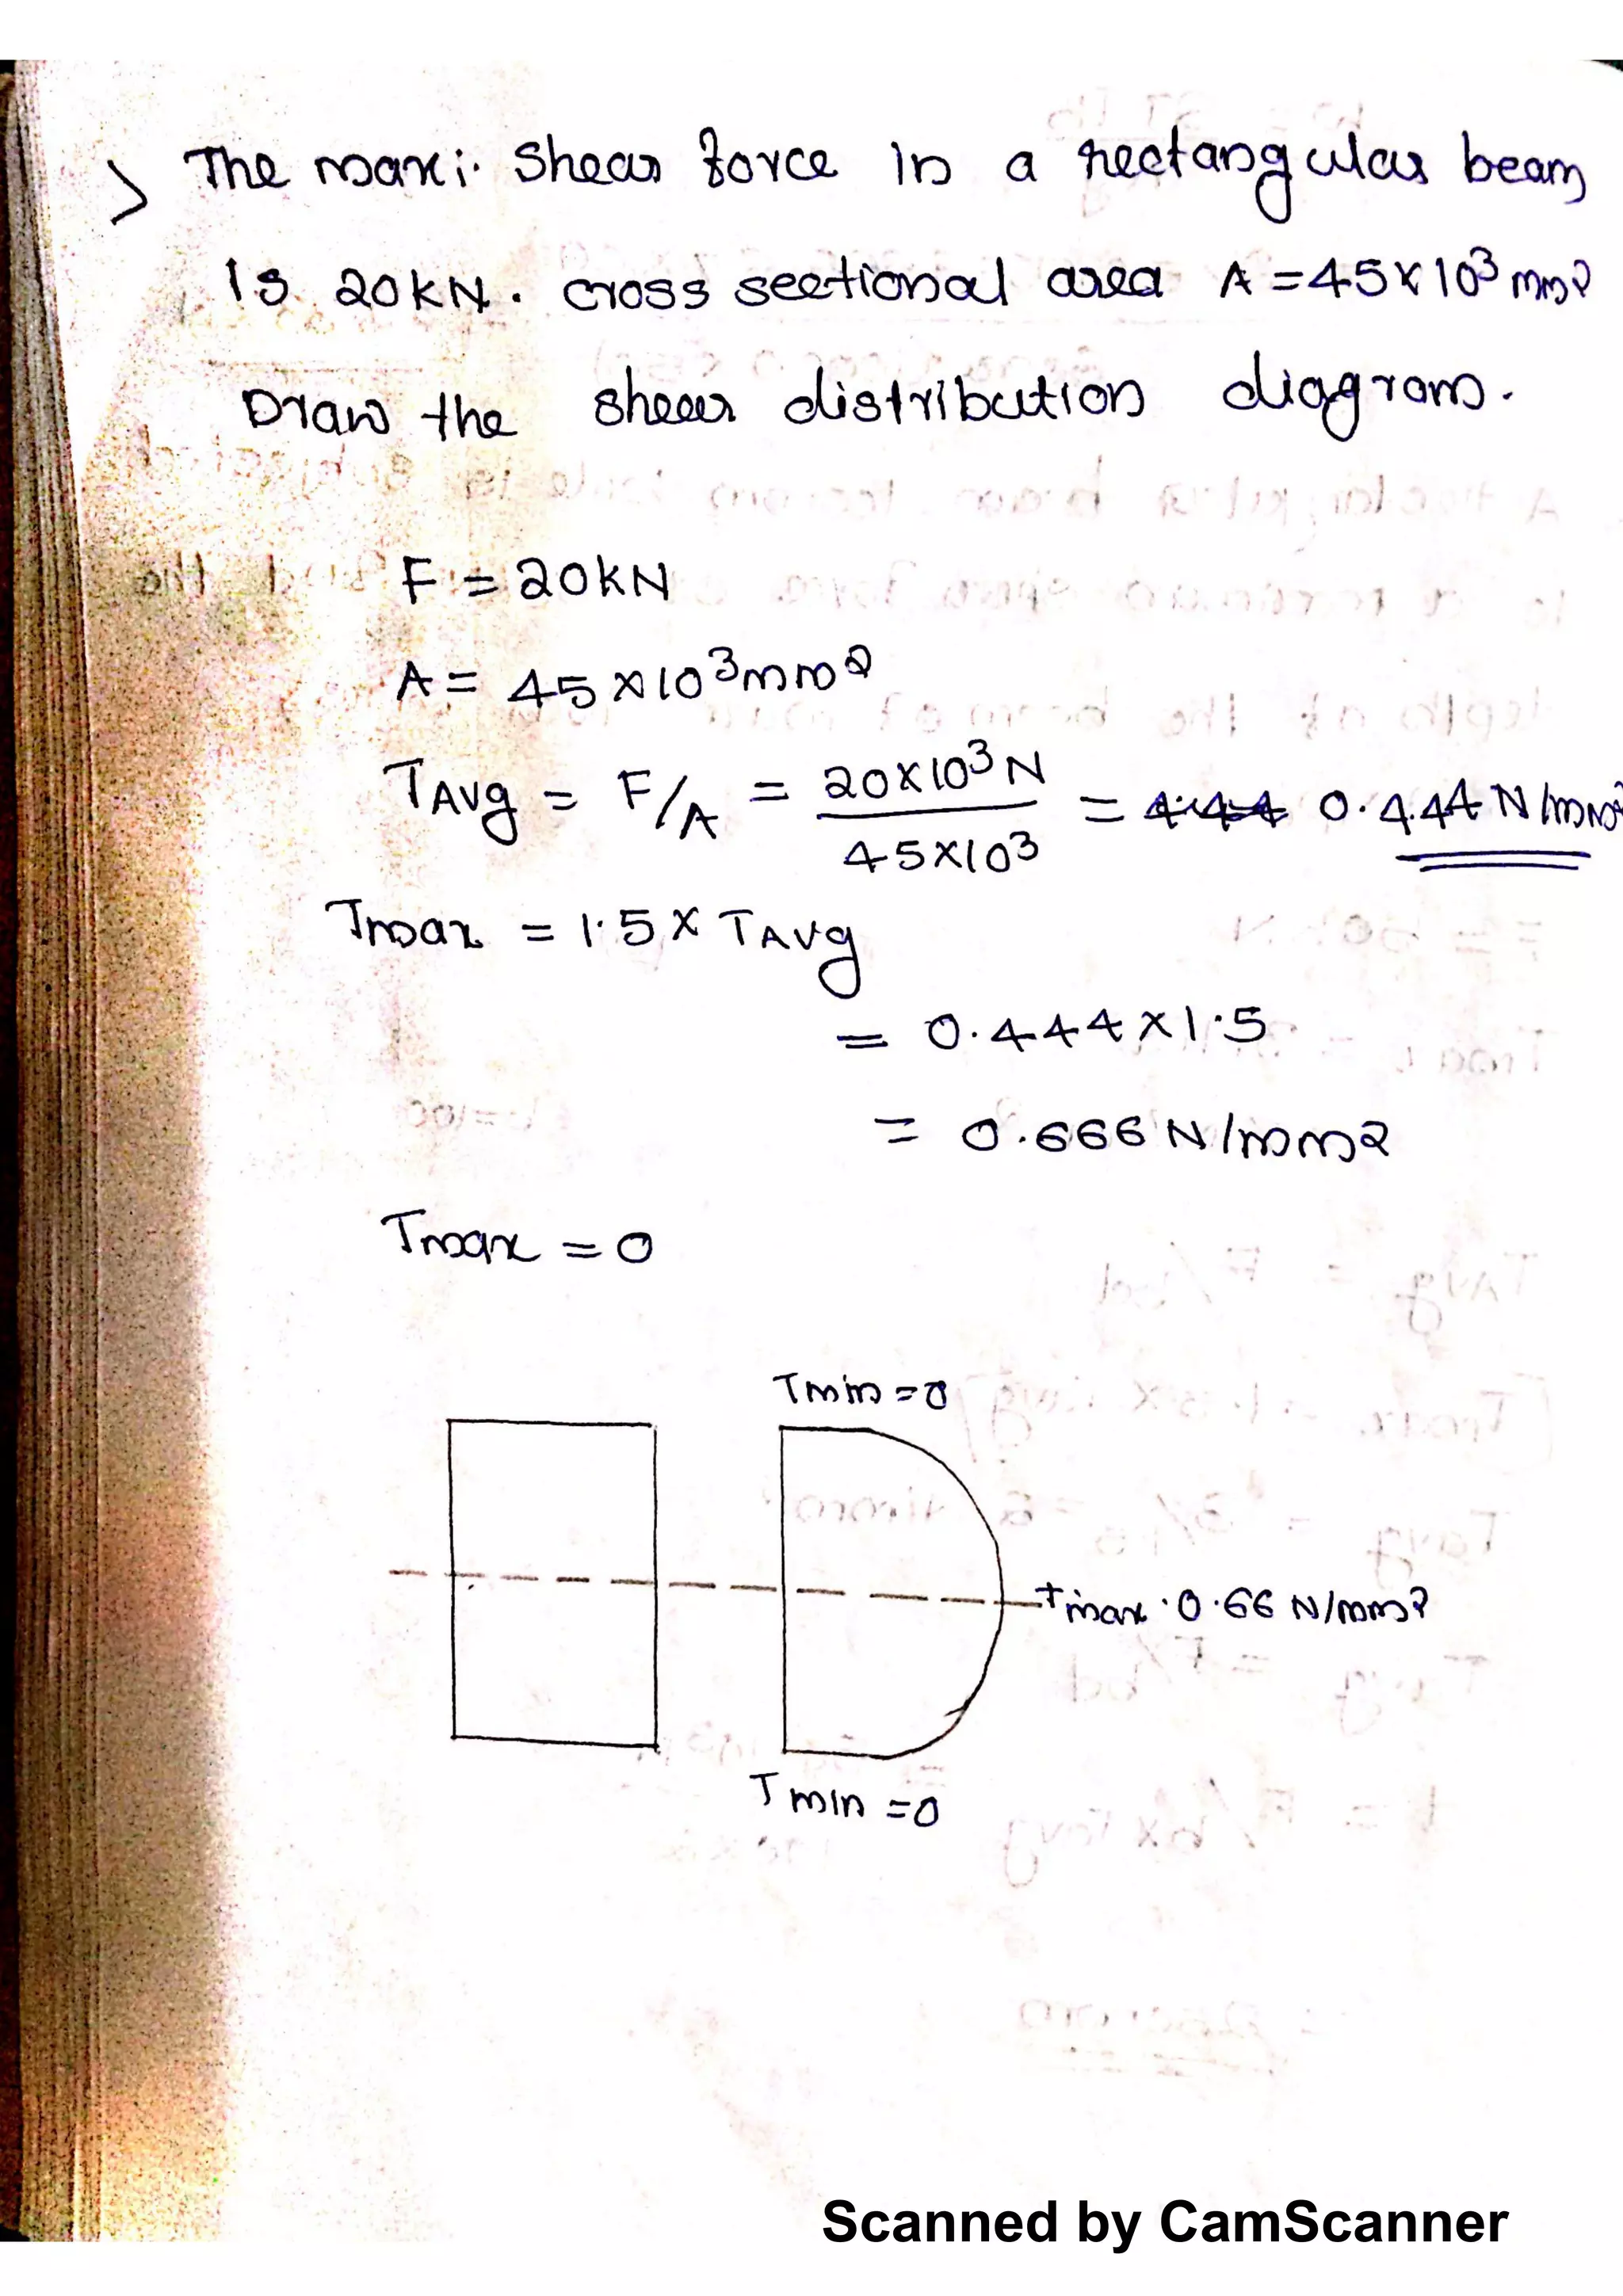 > The maxi. Shear force in a rectangular beam
is 20kN. cross sectional area A = 45 x 10³ mm²
Draw the shear distribution diagram.
F = 20kN
A = 45 x 10³ mm²
TAvg = F/A = 20x10³ N / 45x10³ = 0.444 N/mm²
Tmax = 1.5 x TAvg
= 0.444 x 1.5
= 0.666 N/mm2
Tmax = 0
Tmin = 0
Tmax . 0.66 N/mm²
Tmin = 0
Scanned by CamScanner